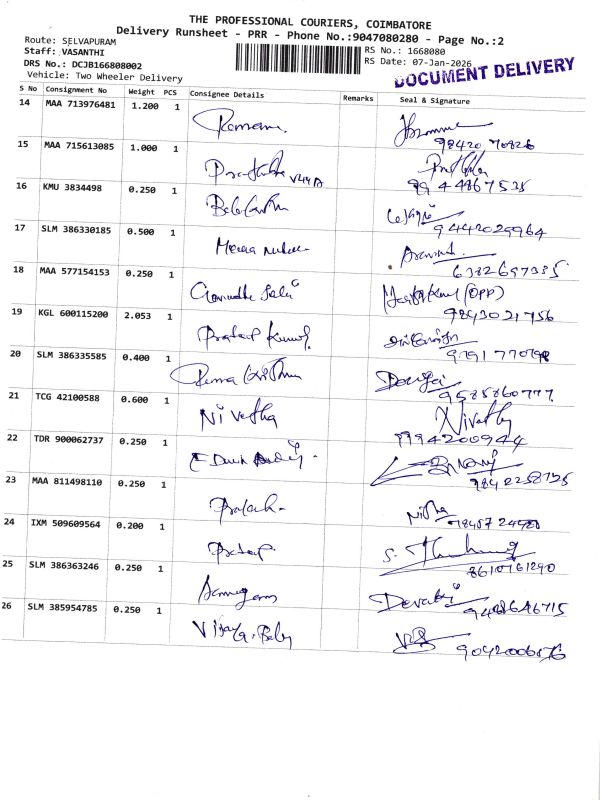 THE PROFESSIONAL COURIERS, COIMBATORE
Delivery Runsheet - PRR - Phone No.:9047080280 - Page No.:2
Route: SELVAPURAM
Staff: VASANTHI
RS No.: 1668080
DRS No.: DCJB166808002
RS Date: 07-Jan-2026
Vehicle: Two Wheeler Delivery
DOCUMENT DELIVERY
S No Consignment No Weight PCS Consignee Details Remarks Seal & Signature
14 MAA 713976481 1.200 1
98420 70826
15 MAA 715613085 1.000 1
9944867535
16 KMU 3834498 0.250 1
9442029964
17 SLM 386330185 0.500 1
6382697335
18 MAA 577154153 0.250 1 (OPP)
9843021756
19 KGL 600115200 2.053 1 Pratap Kumar
20 SLM 386335585 0.400 1
9585860777
21 TCG 42100588 0.600 1 Nivetha
9994200944
22 TDR 900062737 0.250 1
23 MAA 811498110 0.250 1 Prakash Nisha
24 IXM 509609564 0.200 1 Pratap
8610761290
25 SLM 386363246 0.250 1 Devaki
26 SLM 385954785 0.250 1